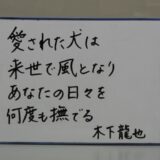 愛された犬は
来世で風となり
あなたの日々を
何度も撫でる
木下龍也